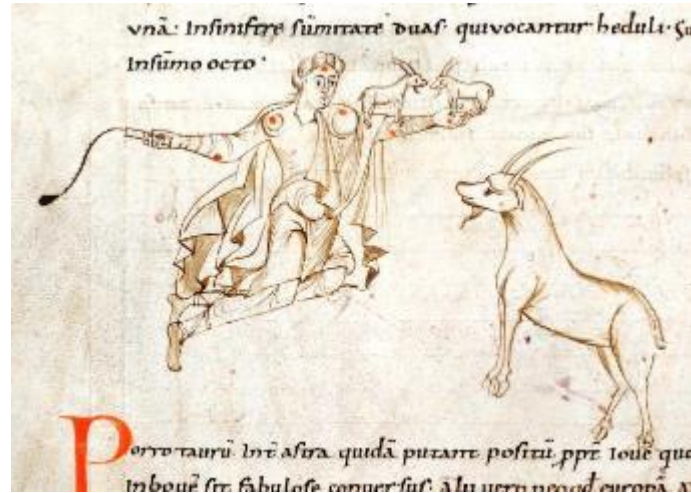 unā· Insinistre sūmitate duas· qui vocantur heduli·
Insūmo octo·
Porro taurū Int asira quidā putant positū ppt Ioue quo
Inbouē sit fabulose conuersus· Alii uero